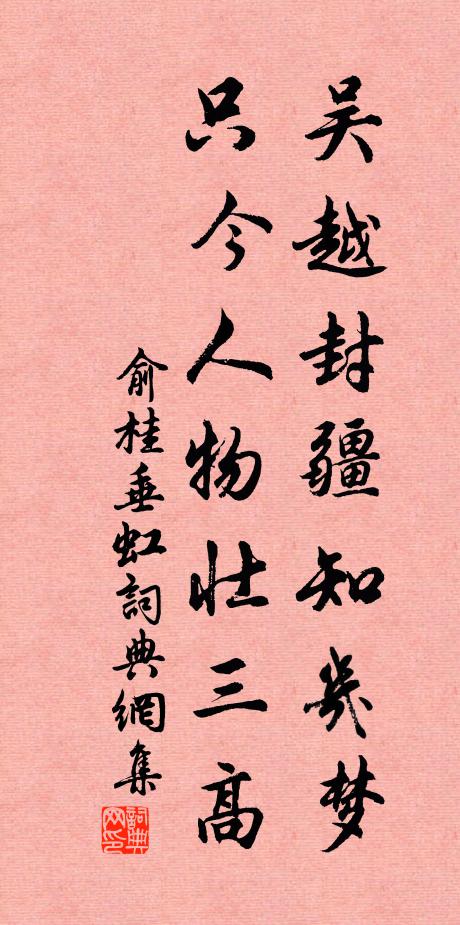 吴越封疆知幾梦
只今人物壮三高
俞桂垂虹詞典網集
詞典网印